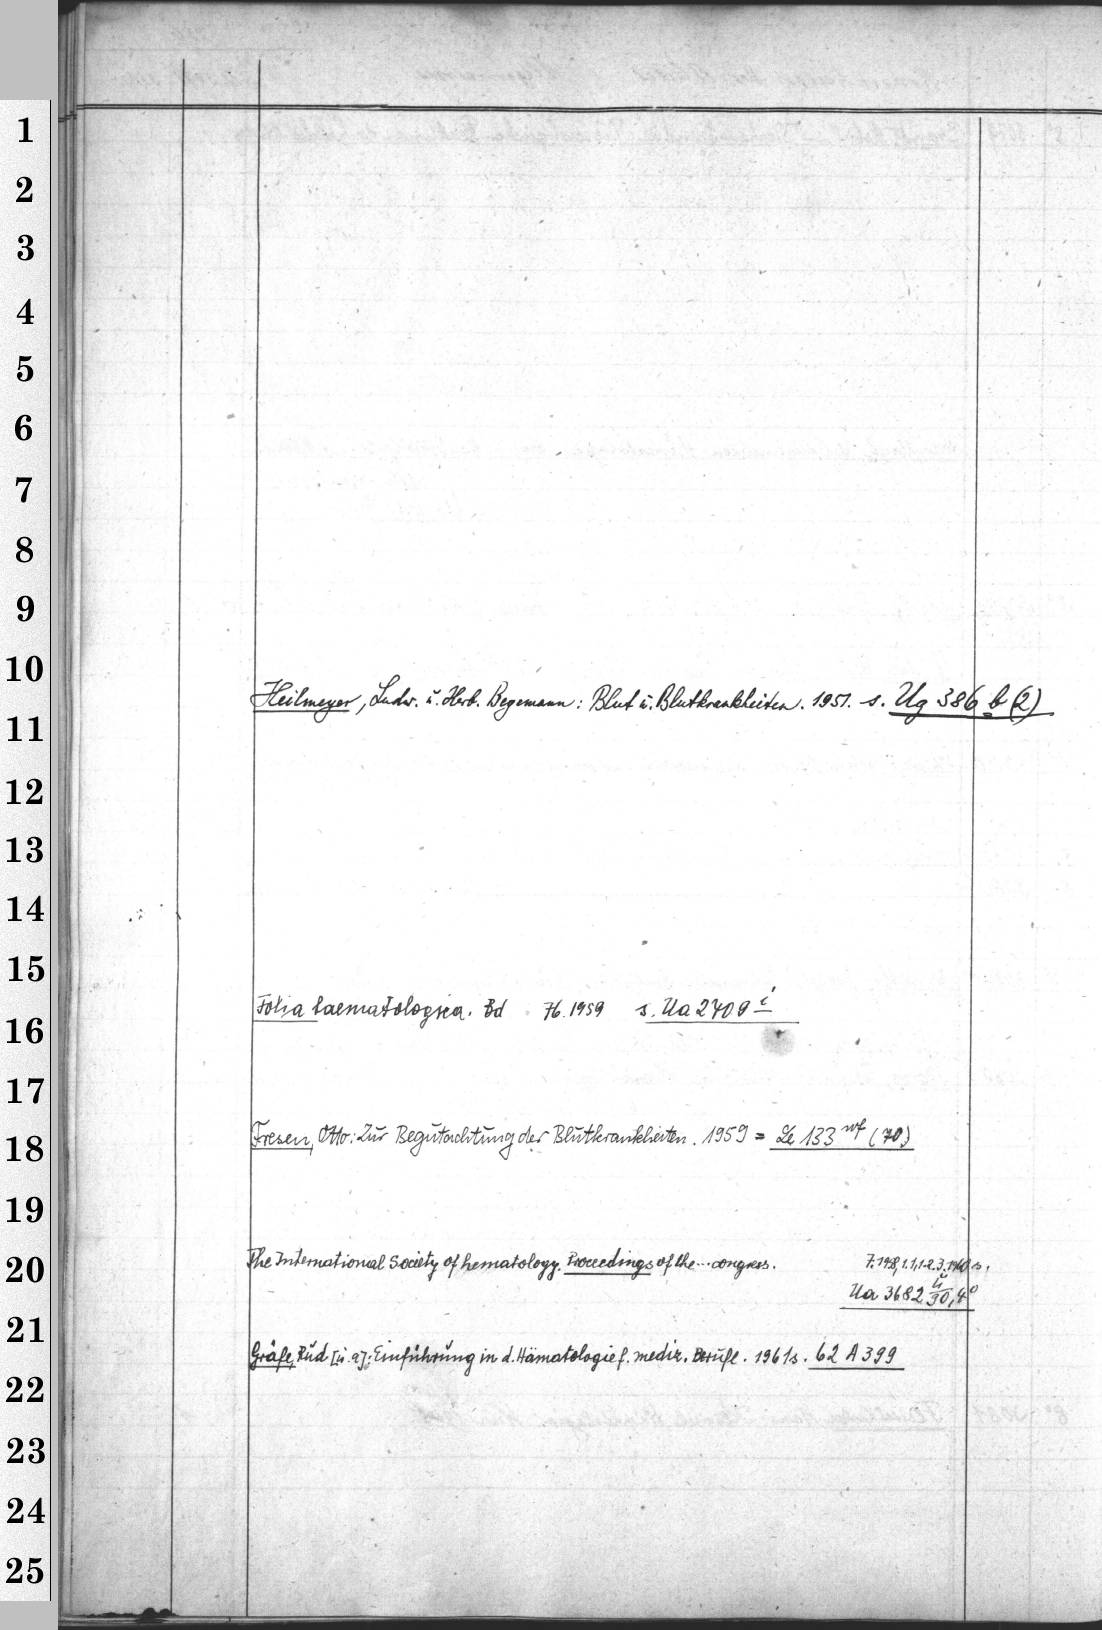 1
2
3
4
5
6
7
8
9
10
Heilmeyer, Ludw. u. Herb. Begemann: Blut u. Blutkrankheiten. 1951. s. Ug 386 b (2)
11
12
13
14
15
Folia haematologica. Bd 76. 1959 s. Ua 2709 i
16
17
Fresen, Otto: Zur Begutachtung der Blutkrankheiten. 1959 = Le 133 wf (70)
18
19
The International Society of hematology. Proceedings of the ... congress.
20
Ua 3682
21
Gräfe, Rud [u. a]: Einführung in d. Hämatologie f. mediz. Berufe. 1961 s. 62 A 399
22
23
24
25